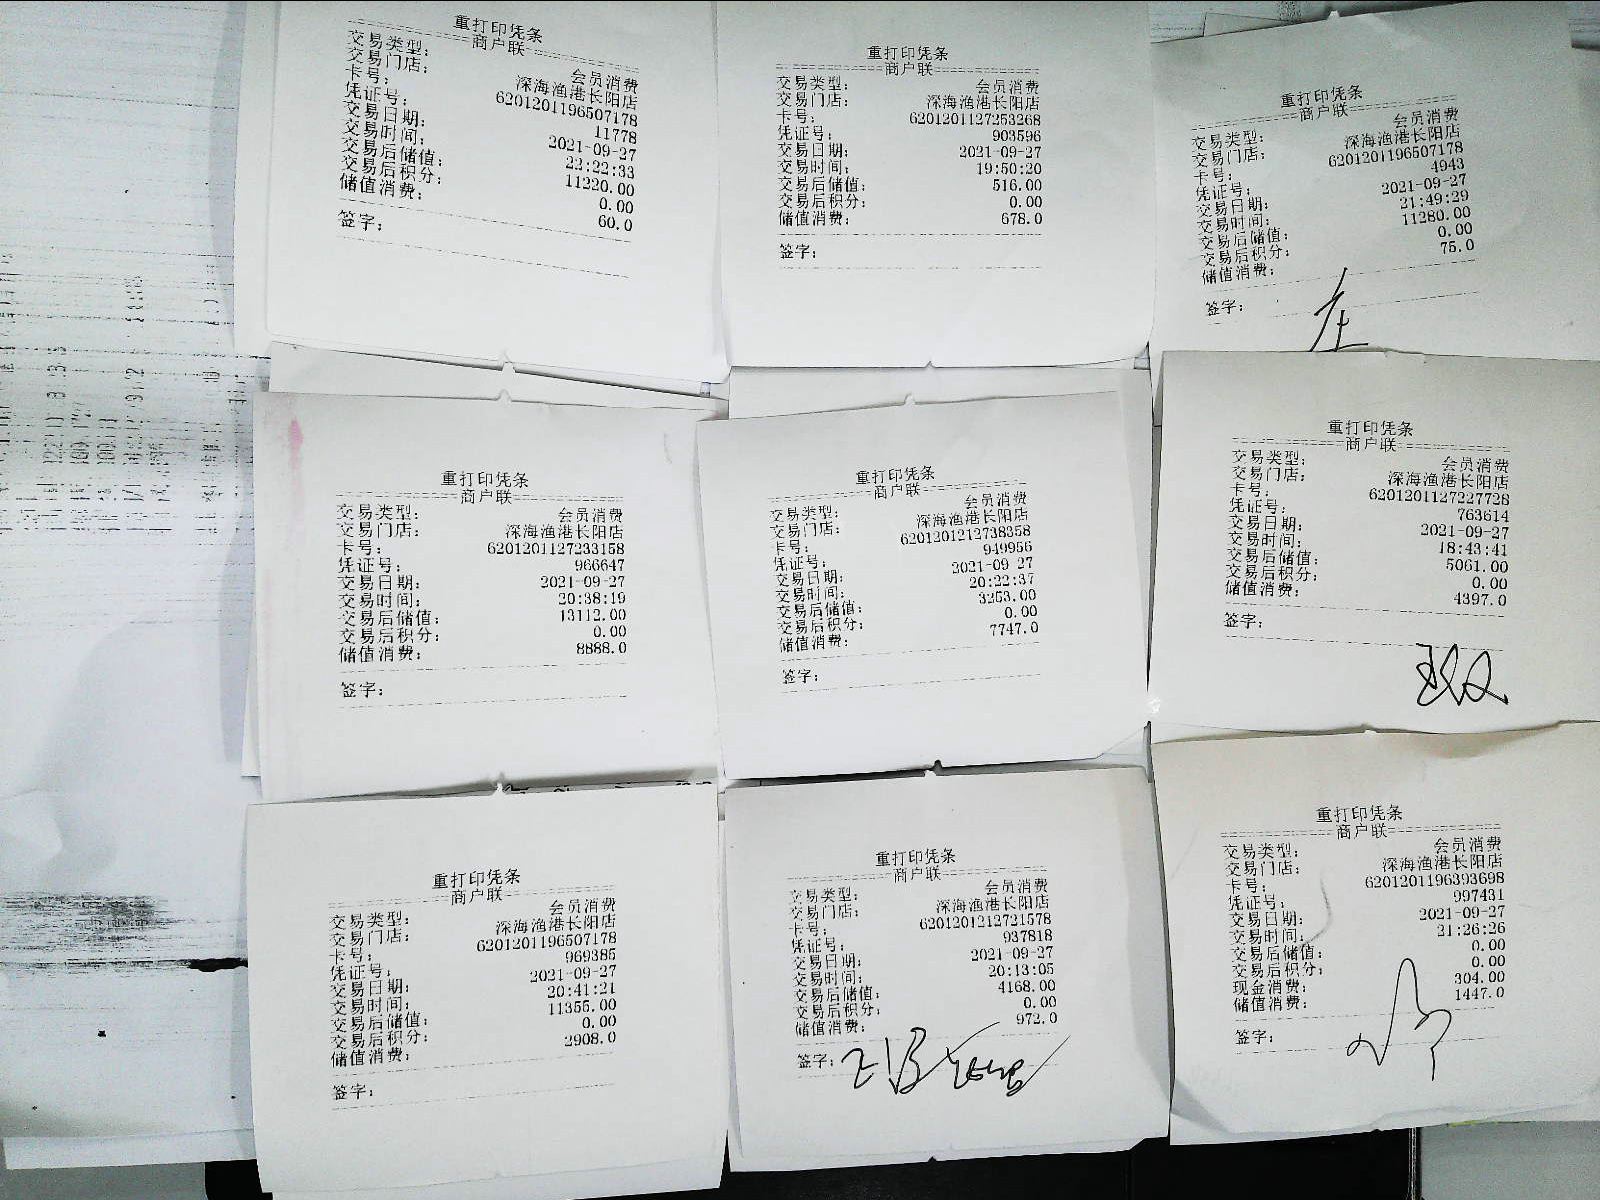 重打印凭条
商户联
交易类型: 会员消费
交易门店: 深海渔港长阳店
卡号: 6201201196507178
凭证号: 11778
交易日期: 2021-09-27
交易时间: 22:22:33
交易后储值: 11220.00
交易后积分: 0.00
储值消费: 60.0
签字:
重打印凭条
商户联
交易类型: 会员消费
交易门店: 深海渔港长阳店
卡号: 6201201127253268
凭证号: 903596
交易日期: 2021-09-27
交易时间: 19:50:20
交易后储值: 516.00
交易后积分: 0.00
储值消费: 678.0
签字:
重打印凭条
商户联
交易类型: 会员消费
交易门店: 深海渔港长阳店
卡号: 6201201196507178
凭证号: 4943
交易日期: 2021-09-27
交易时间: 21:49:29
交易后储值: 11280.00
交易后积分: 0.00
储值消费: 75.0
签字:
重打印凭条
商户联
交易类型: 会员消费
交易门店: 深海渔港长阳店
卡号: 6201201127233158
凭证号: 966647
交易日期: 2021-09-27
交易时间: 20:38:19
交易后储值: 13112.00
交易后积分: 0.00
储值消费: 8888.0
签字:
重打印凭条
商户联
交易类型: 会员消费
交易门店: 深海渔港长阳店
卡号: 6201201212738358
凭证号: 949956
交易日期: 2021-09-27
交易时间: 20:22:37
交易后储值: 3253.00
交易后积分: 0.00
储值消费: 7747.0
签字:
重打印凭条
商户联
交易类型: 会员消费
交易门店: 深海渔港长阳店
卡号: 6201201127227728
凭证号: 763614
交易日期: 2021-09-27
交易时间: 18:43:41
交易后储值: 5061.00
交易后积分: 0.00
储值消费: 4397.0
签字:
重打印凭条
商户联
交易类型: 会员消费
交易门店: 深海渔港长阳店
卡号: 6201201196507178
凭证号: 969385
交易日期: 2021-09-27
交易时间: 20:41:21
交易后储值: 11355.00
交易后积分: 0.00
储值消费: 2908.0
签字:
重打印凭条
商户联
交易类型: 会员消费
交易门店: 深海渔港长阳店
卡号: 6201201212721578
凭证号: 937818
交易日期: 2021-09-27
交易时间: 20:13:05
交易后储值: 4168.00
交易后积分: 0.00
储值消费: 972.0
签字:
重打印凭条
商户联
交易类型: 会员消费
交易门店: 深海渔港长阳店
卡号: 6201201196393698
凭证号: 997431
交易日期: 2021-09-27
交易时间: 21:26:26
交易后储值: 0.00
交易后积分: 0.00
现金消费: 304.00
储值消费: 1447.0
签字: